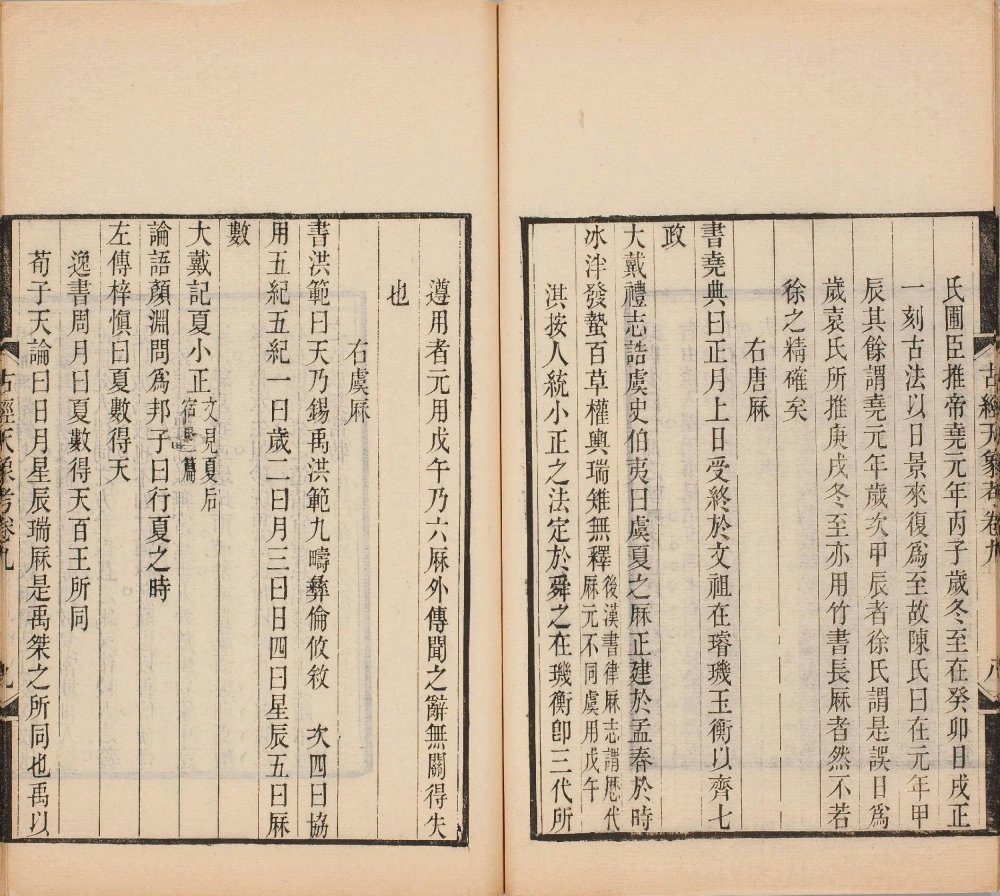 氏圃臣推帝堯元年丙子歲冬至在癸卯日戌正
一刻古法以日景來復爲至故陳氏曰在元年甲
辰其餘謂堯元年歲次甲辰者徐氏謂是誤日爲
歲袁氏所推庚戌冬至亦用竹書長厤者然不若
徐之精確矣
右唐厤
書堯典曰正月上日受終於文祖在璿璣玉衡以齊七
政
大戴禮志誥虞史伯夷曰虞夏之厤正建於孟春於時
冰泮發蟄百草權輿瑞雉無釋後漢書律厤志謂厯代
厤元不同虞用戊午
淇按人統小正之法定於舜之在璣衡卽三代所
古經天象考卷九
八
遵用者元用戊午乃六厤外傳聞之辭無關得失
也
右虞厤
書洪範曰天乃錫禹洪範九疇彝倫攸敘 次四曰協
用五紀五紀一曰歲二曰月三曰日四曰星辰五曰厤
數
大戴記夏小正文見夏后
宿璽篇
論語顏淵問爲邦子曰行夏之時
左傳梓愼曰夏數得天
逸書周月曰夏數得天百王所同
荀子天論曰日月星辰瑞厤是禹桀之所同也禹以
古經天象考卷九
九